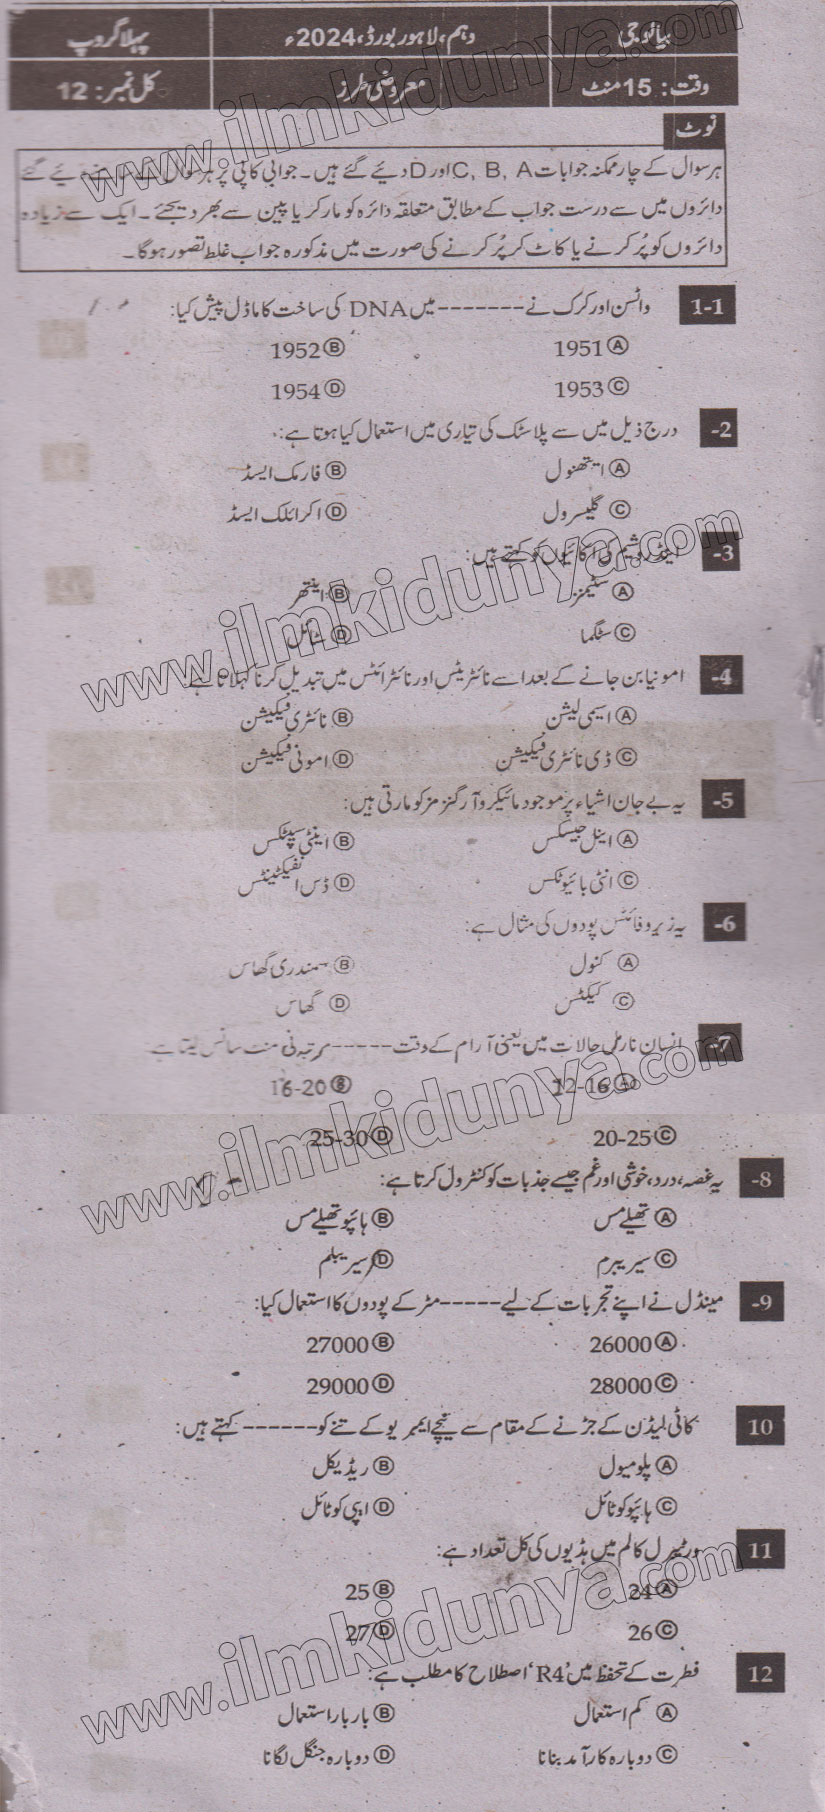 بیالوجی دہم، لاہور بورڈ، 2024ء پہلا گروپ
وقت: 15 منٹ معروضی طرز کل نمبر: 12
نوٹ
ہر سوال کے چار ممکنہ جوابات C, B, A اور D دیئے گئے ہیں۔ جوابی کاپی پر ہر سوال کے سامنے دیئے گئے
دائروں میں سے درست جواب کے مطابق متعلقہ دائرہ کو مارکر یا پین سے بھر دیجئے۔ ایک سے زیادہ
دائروں کو پُر کرنے یا کاٹ کر پُر کرنے کی صورت میں مذکورہ جواب غلط تصور ہو گا۔
1-1 واٹسن اور کرک نے ------- میں DNA کی ساخت کا ماڈل پیش کیا:
Ⓐ 1951 Ⓑ 1952
Ⓒ 1953 Ⓓ 1954
-2 درج ذیل میں سے پلاسٹک کی تیاری میں استعمال کیا ہوتا ہے:
Ⓐ ایتھنول Ⓑ فارمک ایسڈ
Ⓒ گلیسرول Ⓓ اکرائلک ایسڈ
-3 اینڈروشیم کی اکائیوں کو کہتے ہیں:
Ⓐ سٹیمنز Ⓑ اینتھر
Ⓒ سٹگما Ⓓ سٹائل
-4 امونیا بن جانے کے بعد اسے نائٹریٹس اور نائٹرائٹس میں تبدیل کرنا کہلاتا ہے:
Ⓐ اسیمی لیشن Ⓑ نائٹری فیکیشن
Ⓒ ڈی نائٹری فیکیشن Ⓓ امونی فیکیشن
-5 یہ بے جان اشیاء پر موجود مائیکرو آرگنزمز کو مارتی ہیں:
Ⓐ اینل جیسکس Ⓑ اینٹی سیپٹکس
Ⓒ انٹی بائیوٹکس Ⓓ ڈس انفیکٹینٹس
-6 یہ زیروفائٹس پودوں کی مثال ہے:
Ⓐ کنول Ⓑ سمندری گھاس
Ⓒ کیکٹس Ⓓ گھاس
-7 انسان نارمل حالات میں یعنی آرام کے وقت ----- مرتبہ فی منٹ سانس لیتا ہے
Ⓐ 12-16 Ⓑ 16-20
Ⓒ 20-25 Ⓓ 25-30
-8 یہ غصہ، درد، خوشی اور غم جیسے جذبات کو کنٹرول کرتا ہے:
Ⓐ تھیلے مس Ⓑ ہائپوتھیلے مس
Ⓒ سیریبرم Ⓓ سیریبلم
-9 مینڈل نے اپنے تجربات کے لیے ----- مٹر کے پودوں کا استعمال کیا:
Ⓐ 26000 Ⓑ 27000
Ⓒ 28000 Ⓓ 29000
10 کاٹی لیڈن کے جڑنے کے مقام سے نیچے ایمبریو کے تنے کو ------ کہتے ہیں:
Ⓐ پلومیول Ⓑ ریڈیکل
Ⓒ ہائپوکوٹائل Ⓓ ایپی کوٹائل
11 ورٹیبرل کالم میں ہڈیوں کی کل تعداد ہے:
Ⓐ 24 Ⓑ 25
Ⓒ 26 Ⓓ 27
12 فطرت کے تحفظ میں 'R4' اصطلاح کا مطلب ہے:
Ⓐ کم استعمال Ⓑ بار بار استعمال
Ⓒ دوبارہ کارآمد بنانا Ⓓ دوبارہ جنگل لگانا
www.ilmkidunya.com
www.ilmkidunya.com
www.ilmkidunya.com
www.ilmkidunya.com